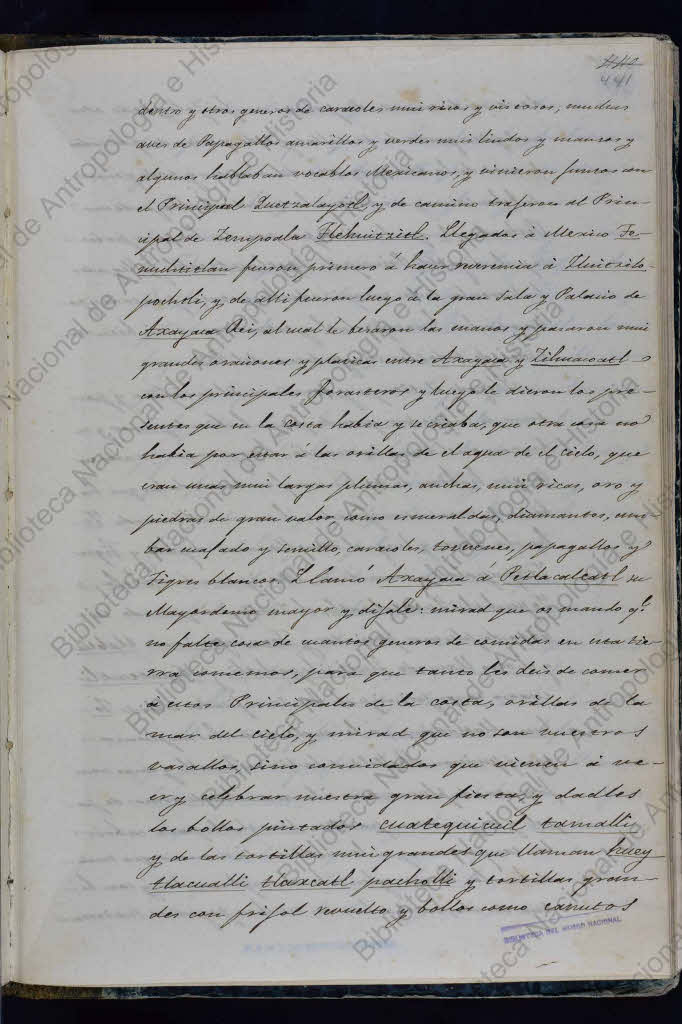 440
441
dentro y otros generos de caracoles mui ricos y viscosos, muchas
aves de Papagallos amarillos y verdes mui lindos y mansos y
algunos hablaban vocablos Mexicanos, y vinieron juntos con
el Principal Quetzalayotl y de camino trajeron al Prin-
cipal de Zempoala Tlehuitzitl. Llegados á Mexico Te-
nuchtitlan fueron primero á hacer reverencia á Huitzilo-
pochtli, y de alli fueron luego á la gran Sala y Palacio de
Axayaca Rei, al cual le besaron las manos y pasaron mui
grandes oraciones y platicas entre Axayaca y Zihuacoatl
con los principales forasteros y luego le dieron los pre-
sentes que en la costa habia y se criaba, que otra cosa no
habia por estar á las orillas de el agua de el cielo, que
eran unas mui largas plumas, anchas, mui ricas, oro y
piedras de gran valor como esmeraldas, diamantes, am-
bar cuajado y sencillo, caracoles, papagallos y
Tigres blancos. Llamó Axayaca á Petlacalcatl su
Mayordomo mayor y díjole: mirad que os mando q.e
no falte cosa de cuantos generos de comidas en esta tie-
rra comemos, para que tanto les deis de comer
á estos Principales de la costa, orillas de la
mar del cielo, y mirad que no son nuestros
vasallos, sino convidados que vienen á ve-
er y celebrar nuestra gran fiesta, y dadles
los bollos pintados cuatequicuil tamalli
y de las tortillas mui grandes que llaman huey
tlacualli tlaxcatl pacholli y tortillas gran-
des con frijol revuelto y bollos como canutos
BIBLIOTECA DEL MUSEO NACIONAL
Biblioteca Nacional de Antropología e Historia